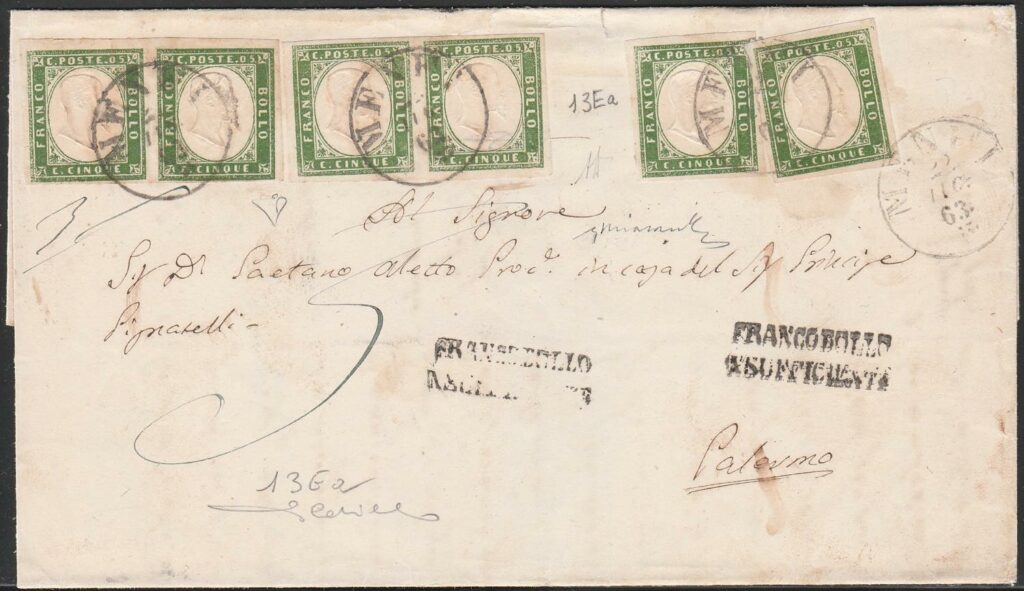 C. POSTE. 05 C. POSTE. 05 C. POSTE. 05 C. POSTE. 05 C. POSTE. 05 C. POSTE. 05
FRANCO BOLLO FRANCO BOLLO FRANCO BOLLO FRANCO BOLLO FRANCO BOLLO FRANCO BOLLO
C. CINQUE C. CINQUE C. CINQUE C. CINQUE C. CINQUE C. CINQUE
13Ea
MENFI
63
Al Signore
Gaetano Aletto Proc. in casa del Sig Principe
Pignatelli
FRANCOBOLLO
FRANCOBOLLO
INSUFFICIENTE
Palermo
13Ea